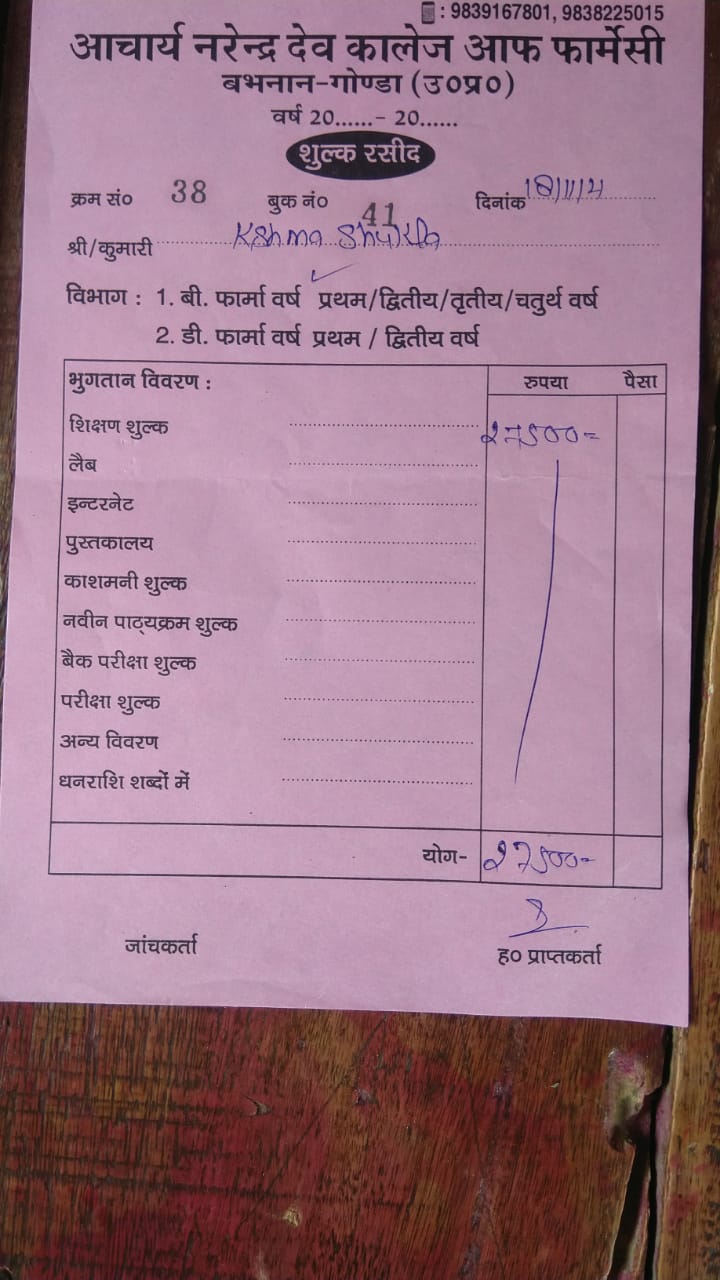 : 9839167801, 9838225015
आचार्य नरेन्द्र देव कालेज आफ फार्मेसी
बभनान-गोण्डा (उ०प्र०)
वर्ष 20......- 20......
शुल्क रसीद
क्रम सं० 38 बुक नं० 41 दिनांक
श्री/कुमारी Kshma Shukla
विभाग : 1. बी. फार्मा वर्ष प्रथम/द्वितीय/तृतीय/चतुर्थ वर्ष
2. डी. फार्मा वर्ष प्रथम / द्वितीय वर्ष
भुगतान विवरण : रुपया पैसा
शिक्षण शुल्क 27500=
लैब
इन्टरनेट
पुस्तकालय
काशमनी शुल्क
नवीन पाठ्यक्रम शुल्क
बैक परीक्षा शुल्क
परीक्षा शुल्क
अन्य विवरण
धनराशि शब्दों में
योग- 27500=
जांचकर्ता ह० प्राप्तकर्ता